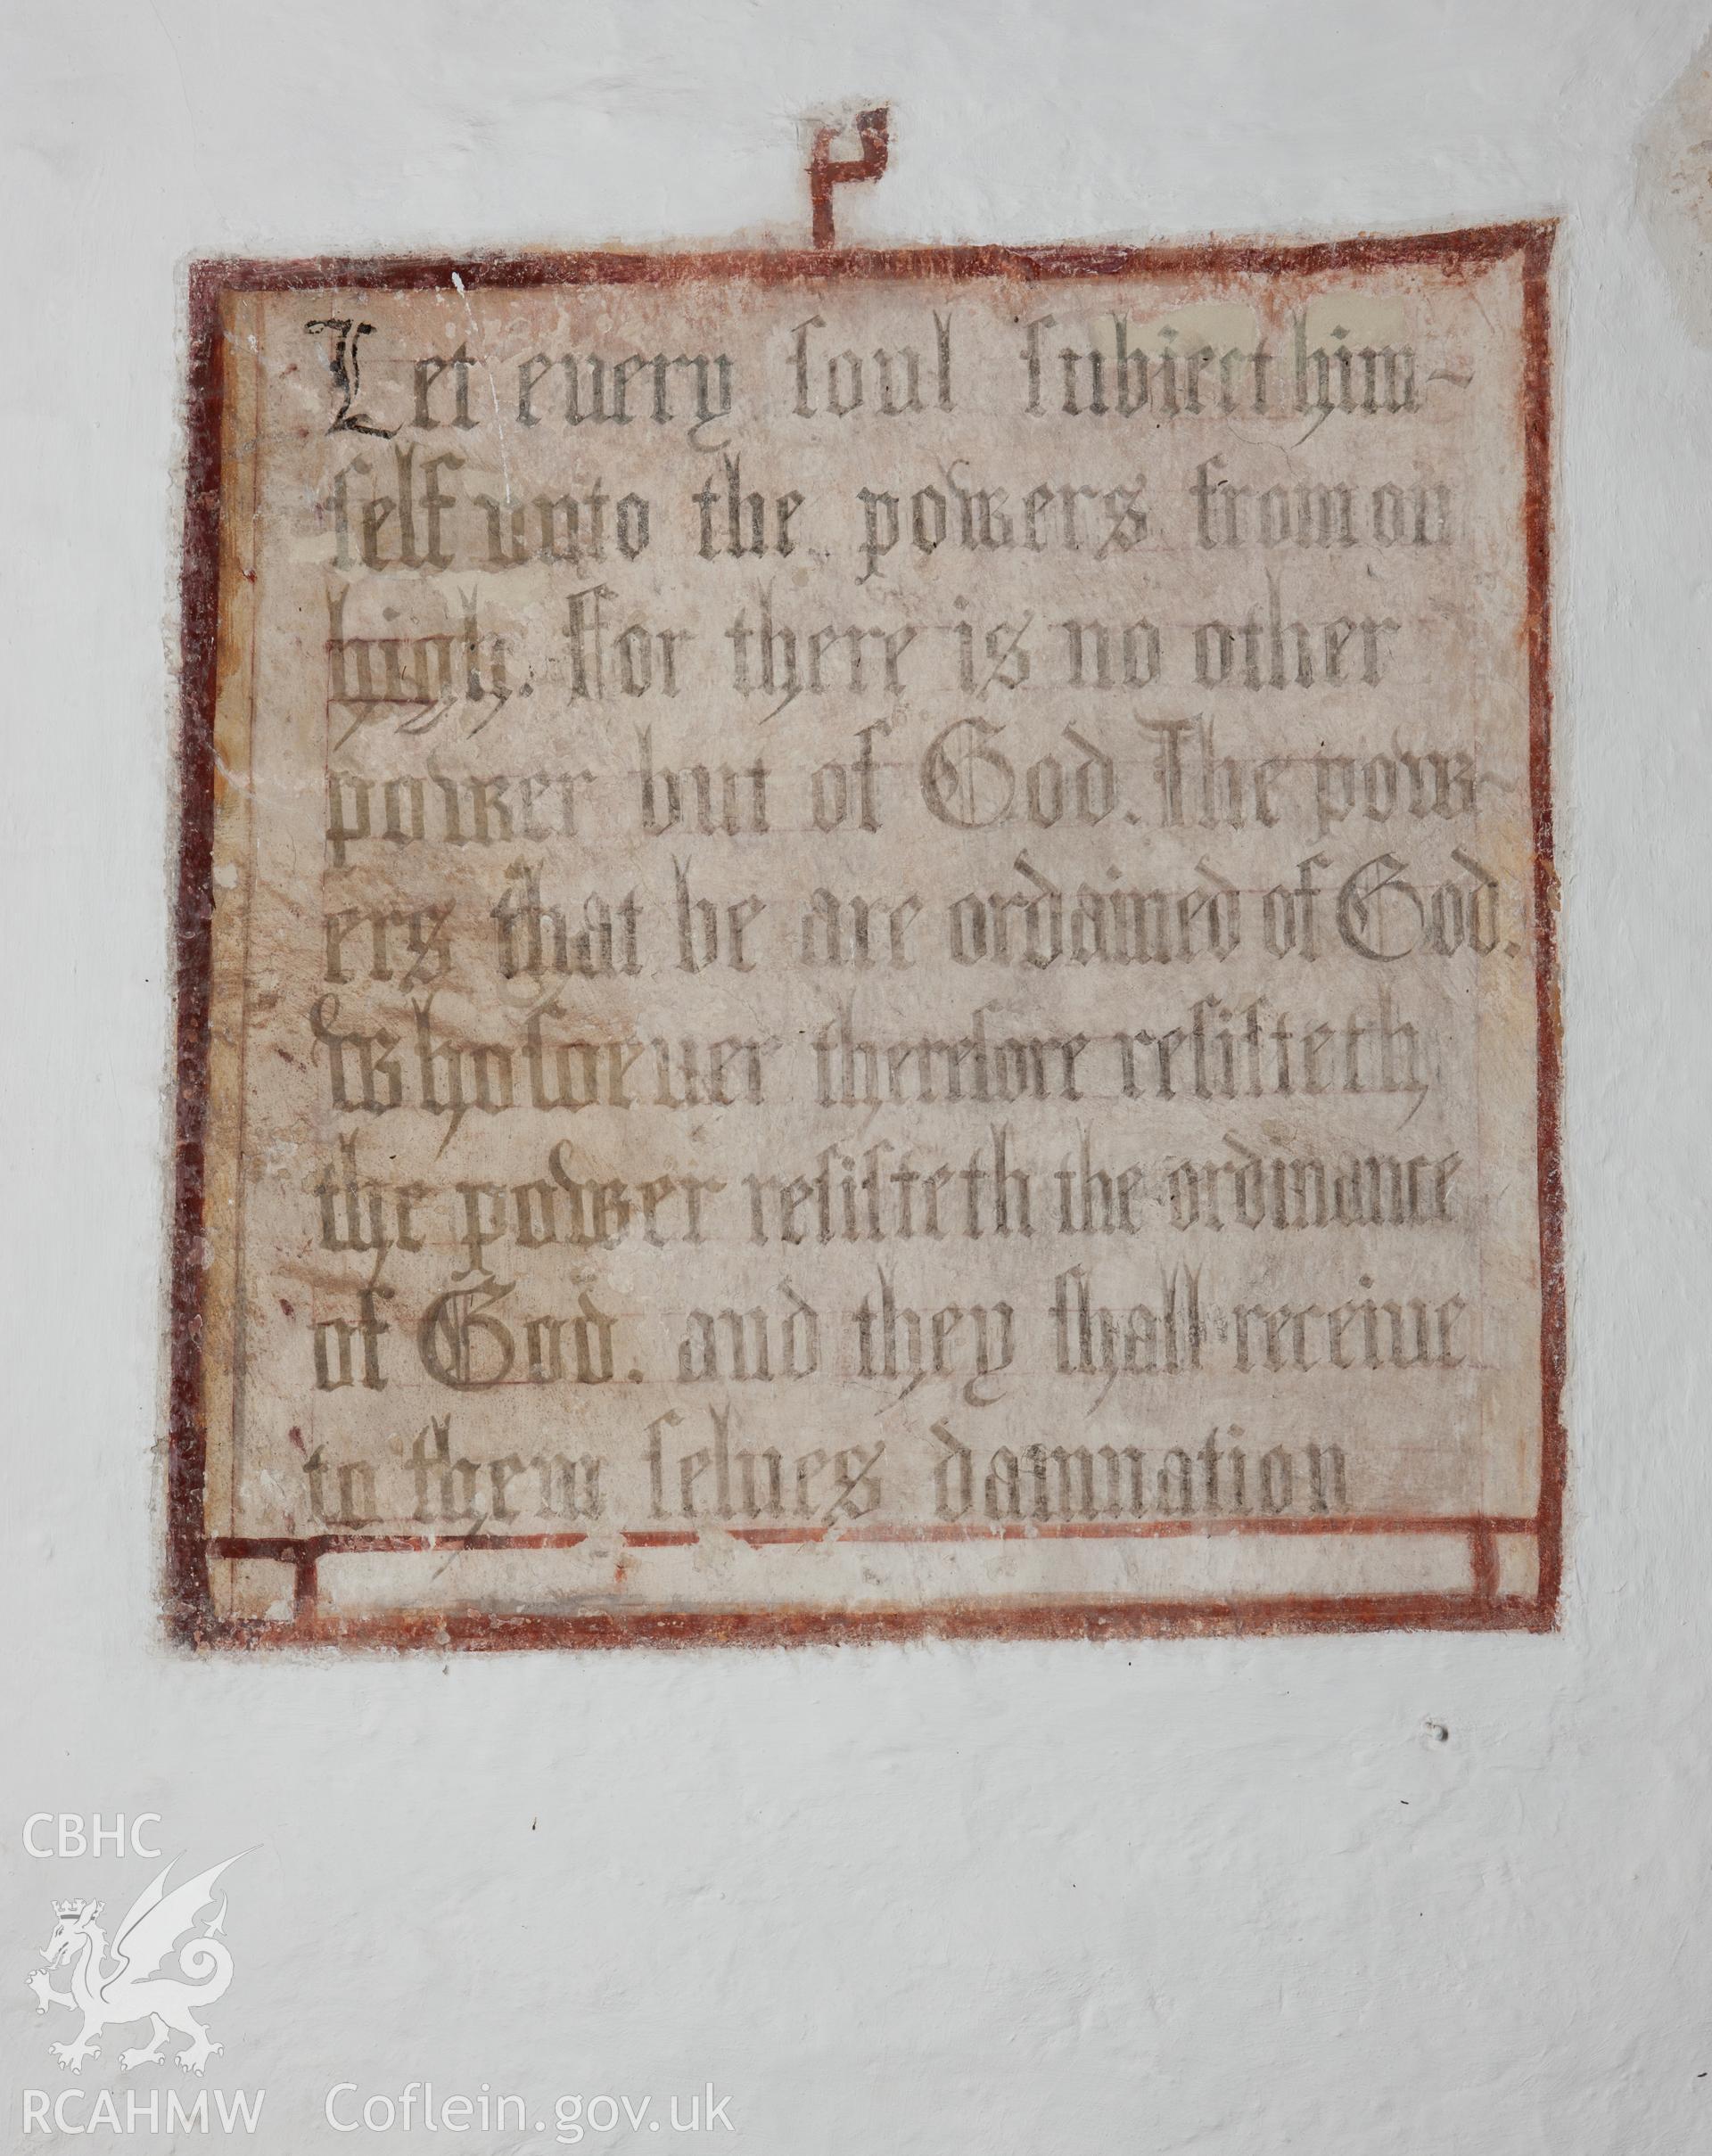 Let euery soul subiect him-
self unto the powers from on
high. For there is no other
power but of God. The pow-
ers that be are ordained of God.
Whosoeuer therefore resisteth
the power resisteth the ordinance
of God. and they shall receiue
to them selues damnation
CBHC
RCAHMW Coflein.gov.uk